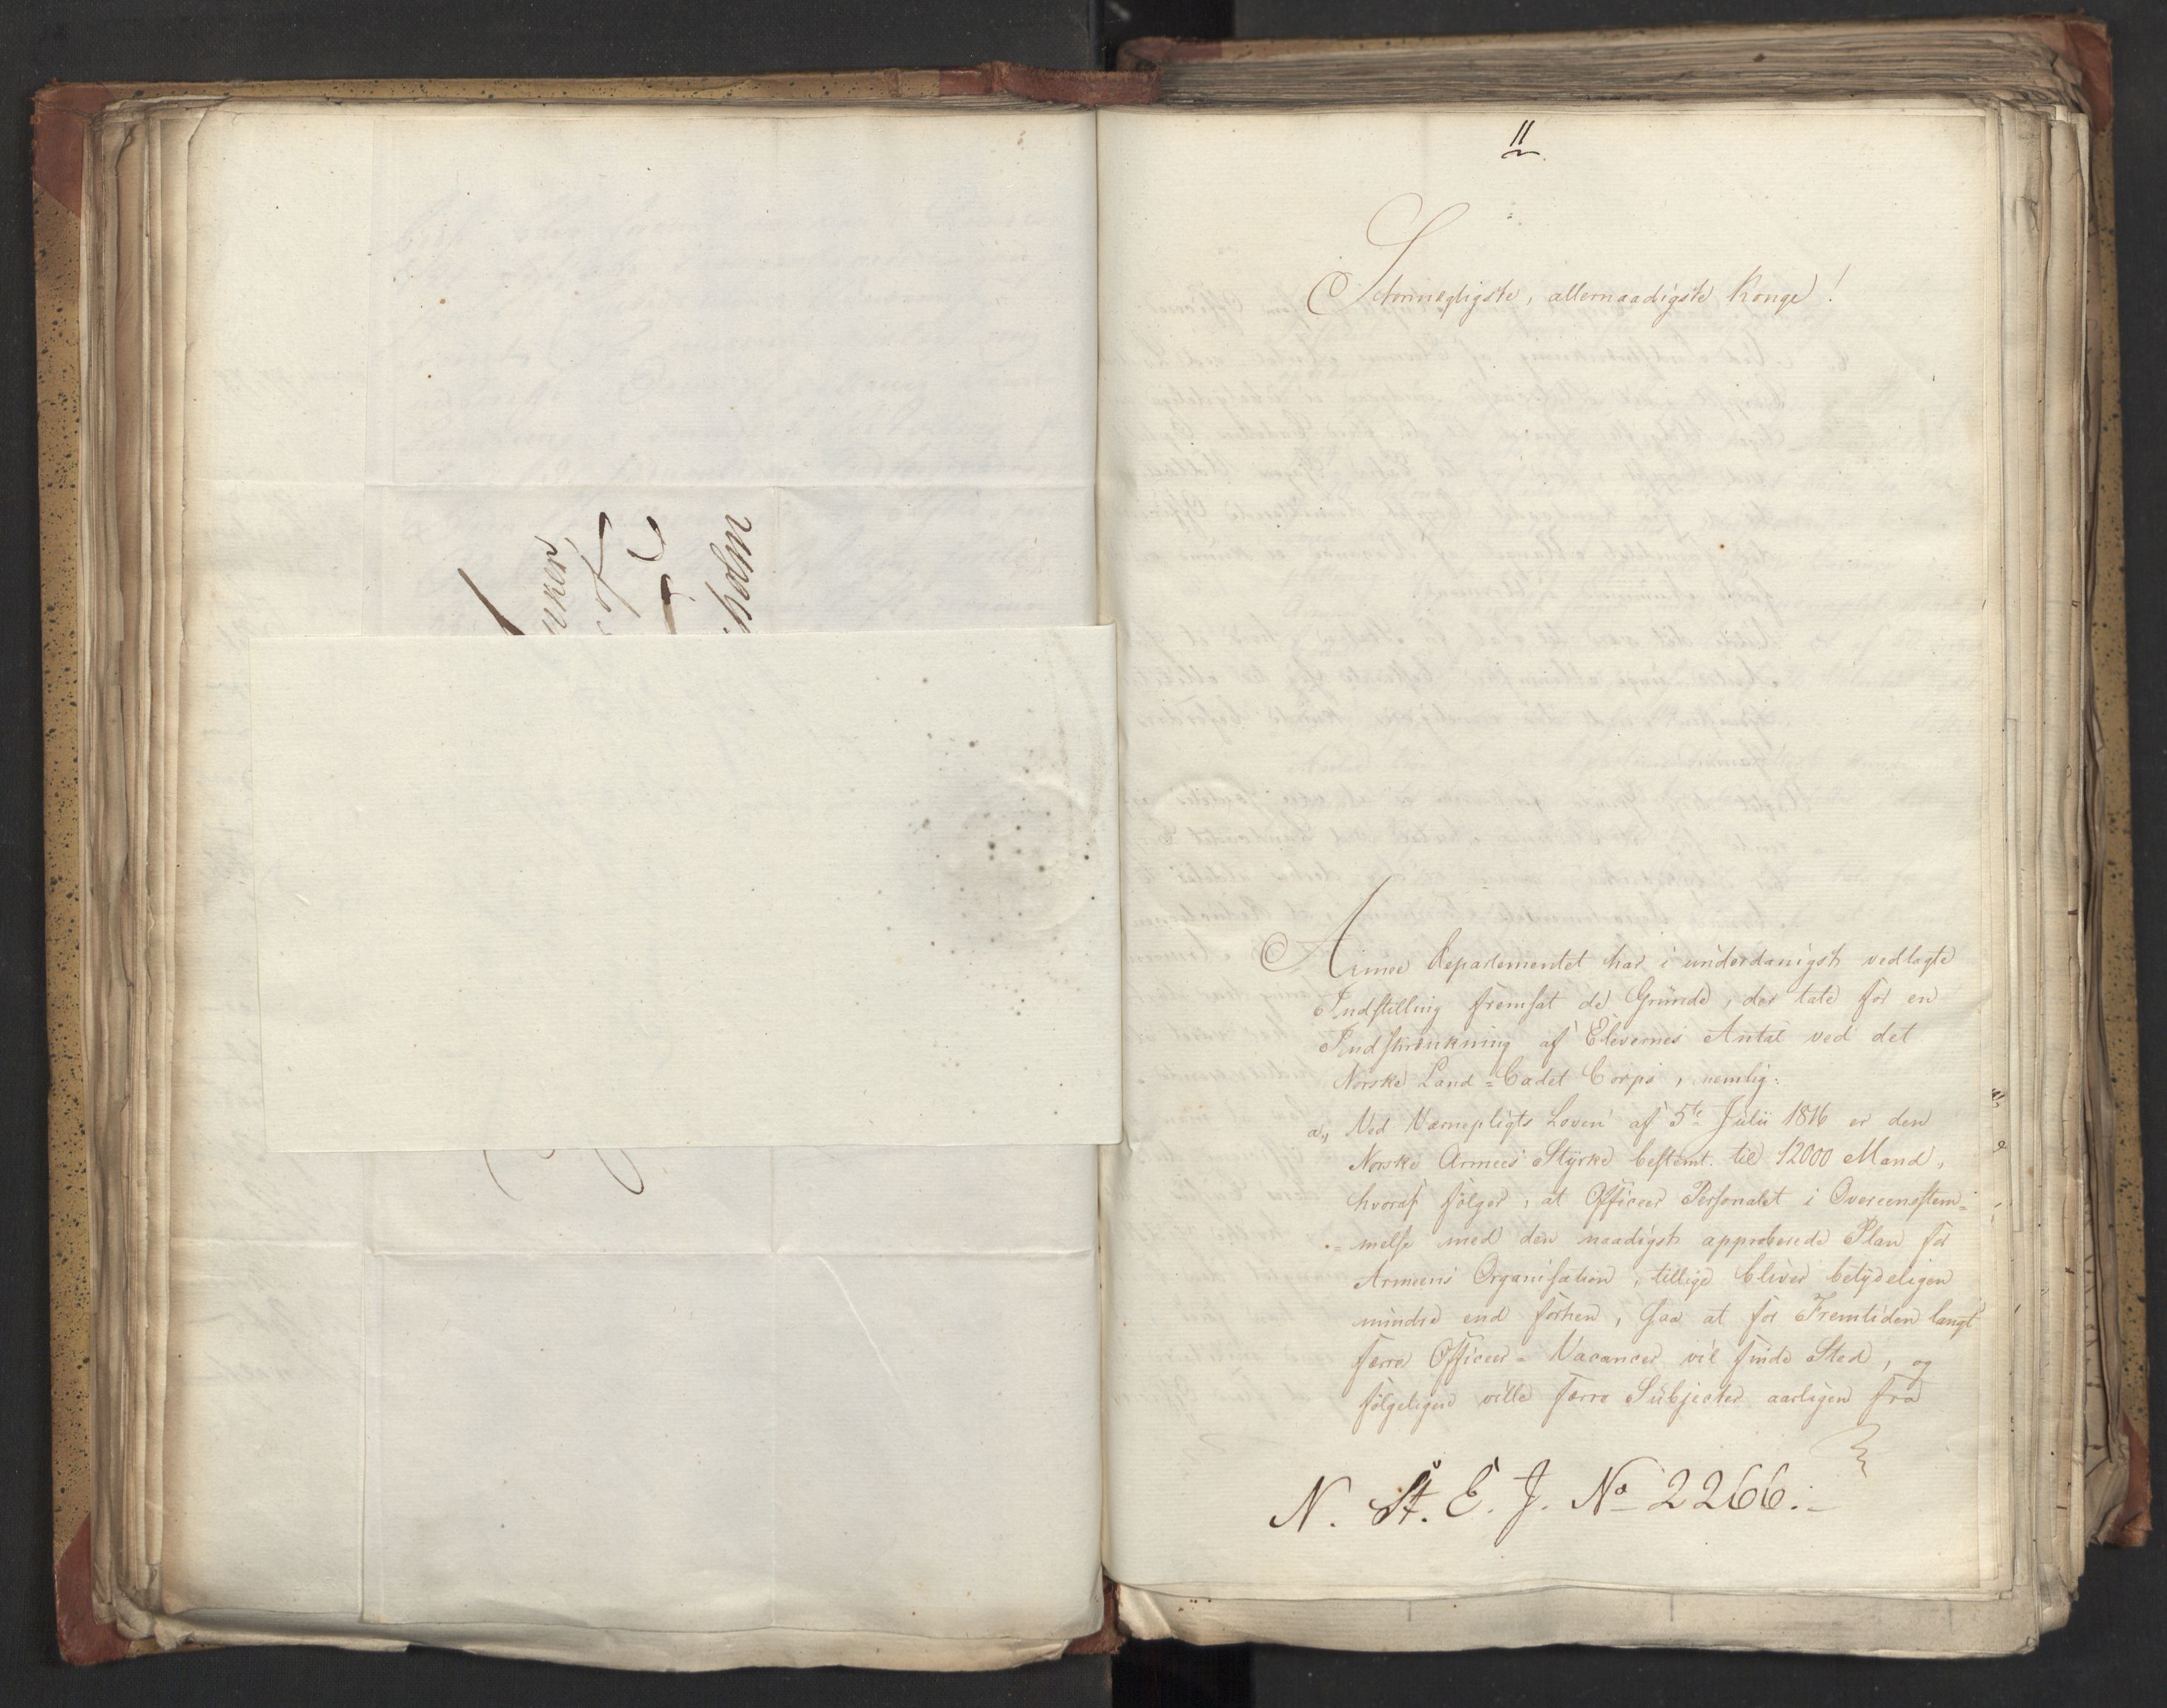 uker,
holm
11
Stormægtigste, allernaadigste Konge!
Armee Departementet har i underdanigst vedlagte
Indstilling fremsat de Grunde, der tale for en
Indskrænkning af Elevernes Antal ved det
Norske Land=Cadet Corps, nemlig:
a,, Ved Værnepligts Loven af 5te Julii 1816 er den
Norske Armees Styrke bestemt til 12000 Mand,
hvoraf følger, at Officeer Personalet i Overeenstem=
=melse med den naadigst approberede Plan for
Armeens Organisation, tillige bliver betydeligen
mindre end forhen, saa at for Fremtiden langt
færre Officeer=Vacancer vil finde Sted, og
følgeligen ville færre Subjecter aarligen fra
N. St. E. J. No 2266.